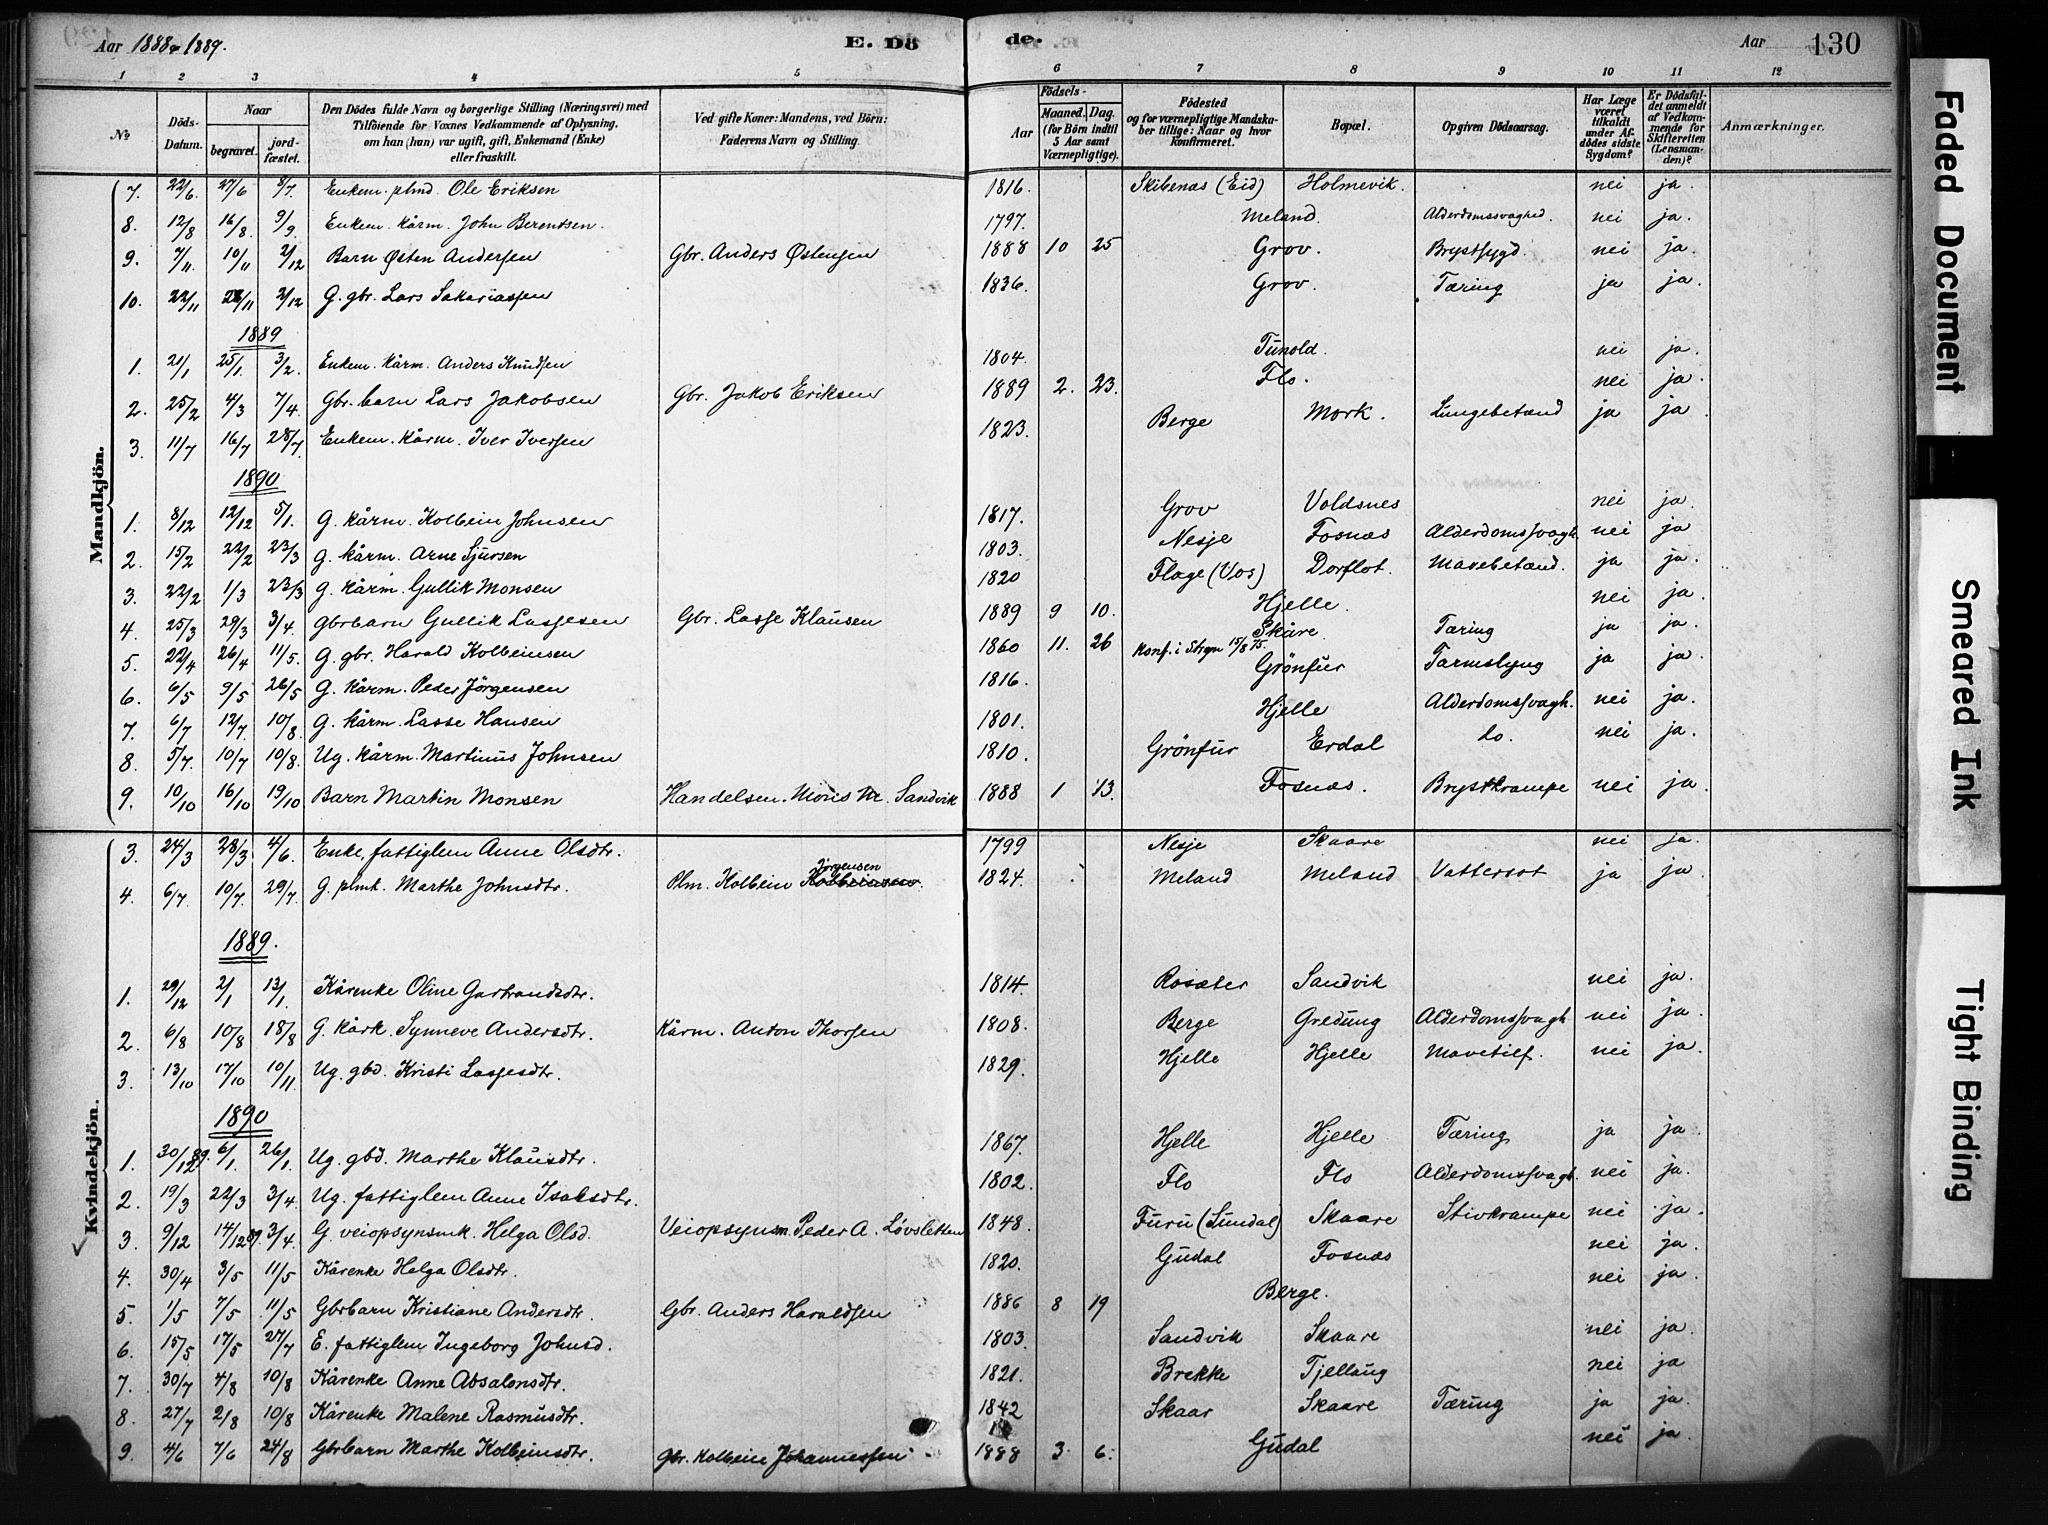 Aar 1888 & 1889. E. Dö de. Aar 130
1 2 3 4 5 6 7 8 9 10 11 12
No Döds-Datum. Naar begravet. jordfæstet. Den Dödes fulde Navn og borgerlige Stilling (Næringsvei) med Tilföiende for Voxnes Vedkommende af Oplysning, om han (hun) var ugift, gift, Enkemand (Enke) eller fraskilt. Ved gifte Koner: Mandens, ved Börn: Faderens Navn og Stilling. Födsels- Aar Maaned. Dag. (for Börn indtil 5 Aar samt Værnepligtige). Födested og for værnepligtige Mandskaber tillige: Naar og hvor konfirmeret. Bopæl. Opgiven Dödsaarsag. Har Læge været tilkaldt under Afdödes sidste Sygdom? Er Dödsfaldet anmeldt af Vedkommende for Skifteretten (Lensmanden)? Anmærkninger.
Mandkjön.
7. 22/6 27/6 8/7. Enkem. plmd. Ole Eriksen 1816. Skibenas (Eid) Holmevik. nei ja.
8. 12/8 16/8. 9/9. Enkem. kårm. John Berentsen. 1797. Meland. Alderdomssvaghed. nei ja.
9. 7/11. 10/11 2/12 Barn Østen Andersen Gbr. Anders Østensen 1888 10 25 Grov. Brystsygd. nei ja.
10. 22/11 28/11 2/12 G. gbr. Lars Sakariassen 1836. Grov. Tæring ja ja.
1889
1. 21/1 25/1. 3/2. Enkem. kårm. Anders Knudsen 1804. Tunold. nei ja.
2. 25/2 4/3 7/4. Gbr. barn Lars Jakobsen Gbr. Jakob Eriksen 1889 2. 23. Flo. nei ja.
3. 11/7 16/7 28/7. Enkem. kårm. Iver Iversen 1823. Berge Mork. Lungebetænd ja ja.
1890
1. 8/12 12/12 5/1. G. kårm. Kolbein Johnsen 1817. Grov Voldsnes nei ja.
2. 15/2 22/2 23/3 G. kårm. Arne Sjursen 1803. Nesje Fosnæs Alderdomssvagh. nei ja
3. 22/2 1/3 23/3 G. kårm. Gullik Monsen 1820 Flage (Vos) Dorflot. Mavebetænd. ja ja.
4. 25/3 29/3 3/4. Gbrbarn Gullik Lassesen Gbr. Lasse Klausen 1889 9 10. Hjelle. nei ja.
5. 22/4 26/4 11/5. G. gbr. Harald Kolbeinsen 1860 11. 26 Konf. i Stryn 15/8 75. Skåre. Tæring ja ja.
6. 6/5 9/5 26/5 G. kårm. Peder Jörgensen 1816. Grönfur Tarmslyng ja ja.
7. 6/7 12/7. 10/8 G. kårm. Lasse Hansen 1801. Hjelle Alderdomssvagh. nei ja.
8. 5/7. 10/7 10/8 Ug. kårm. Martinus Johnsen 1810. Grönfur Erdal do. nei ja.
9. 10/10 16/10 19/10 Barn Martin Monsen Handelsm. Mons M. Sandvik 1888 1 13. Fosnæs. Brystkrampe nei ja
Kvindekjön.
3. 24/3 28/3 4/6. Enke, fattiglem Anne Olsdtr. 1799 Nesje Skaare nei ja.
4. 6/7. 10/7. 29/7. G. plmk. Marthe Johnsdtr. Plm. Kolbein Jörgensen 1824. Meland Meland Vattersot ja ja.
1889.
1. 29/12 2/1 13/1. Kårenke Oline Gartrandsdtr. 1814. Rosæter Sandvik nei ja.
2. 6/8 10/8 18/8 G. kårk. Synneve Andersdtr. Kårm. Anton Thorsen 1808. Berge Gredung Alderdomssvagh nei ja.
3. 13/10 17/10 10/11 Ug. gbd. Kristi Lassesdtr. 1829. Hjelle Hjelle Mavetilf. nei ja.
1890
1. 30/12 89. 6/1. 26/1. Ug. gbd. Marthe Klausdtr. 1867. Hjelle Hjelle Tæring ja ja.
2. 19/3 22/3 3/4. Ug. fattiglem Anne Isaksdtr. 1802. Flo Flo Alderdomssvagh. nei ja.
3. 9/12 14/12 89. 3/4. G. veiopsynsmk. Helga Olsd. Veiopsynsm. Peder A. Løvsletten 1848. Furu (Sundal) Skaare Stivkrampe nei ja.
4. 30/4 3/5 11/5 Kårenke Helga Olsdtr. 1820. Gudal Fosnæs nei ja.
5. 1/5 7/5 11/5 Gbrbarn Kristiane Andersdtr. Gbr. Anders Haraldsen 1886 8 19 Berge. nei ja.
6. 15/5 17/5 27/7 E. fattiglem Ingeborg Johnsd. 1803. Sandvik Skaare nei ja.
7. 30/7 4/8 10/8 Kårenke Anne Absalonsdtr. 1821. Brekke Tjellaug nei ja
8. 27/7 2/8 10/8 Kårenke Malene Rasmusdtr. 1842 Skaar Skaare Tæring ja ja.
9. 4/6 7/6 24/8 Gbrbarn Marthe Kolbeinsdtr. Gbr. Kolbein Johannessen 1888 3. 6. Gudal nei ja.
Faded Document
Smeared Ink
Tight Binding